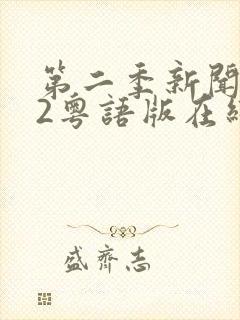 第二季新聞
2粵語版在線
盛齊志